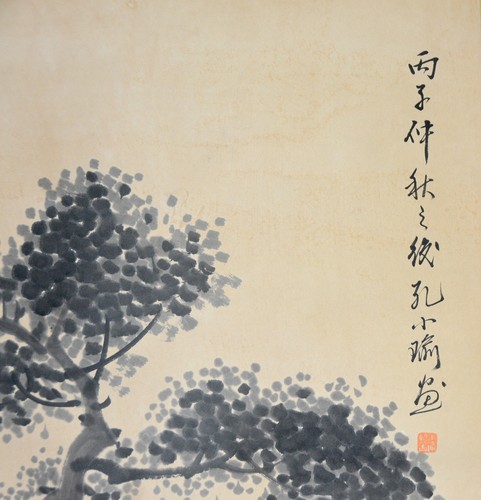 丙子仲秋之後孔小瑜画